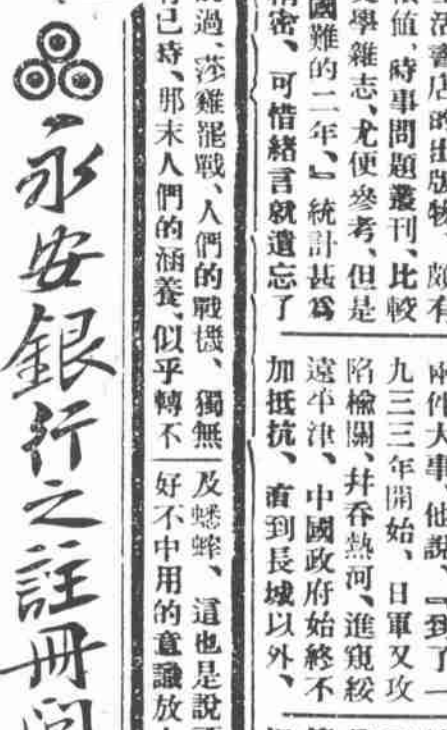 活書店的出版物、頗有
值、時事問題叢刊、比較
學雜志、尤便參考、但是
國難的二年、』統計甚爲
精密、可惜緒言就遺忘了
兩件大事、他說、『到了一
九三三年開始、日軍又攻
陷榆關、幷吞熱河、進窺綏
遠平津、中國政府始終不
加抵抗、直到長城以外、
過、莎雞罷戰、人們的戰機、獨無
已時、那末人們的涵養、似乎轉不
及蟋蟀、這也是說
好不中用的意識放
永安銀行之註冊問